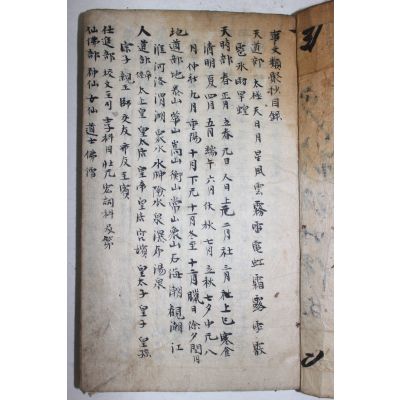 事文類聚抄目錄
天道部 太極 天 日 月 星 風 雲 霧 雷 電 虹 霜 露 雪
雹 氷
天時部 春 正月 立春 元日 人日 上元 二月 社 三月 社 上巳 寒食
清明 夏 四月 五月 端午 六月 伏 秋 七月 立秋 七夕 中元 八
月 仲秋 九月 重陽 十月 下元 十一月 冬至 十二月 臘日 除夕 閏月
地道部 地 泰山 華山 嵩山 衡山 常山 衆山 石 海 潮 觀潮 江
淮 河 洛 渭 湖 衆水 水 泉 瀑布 湯泉
人道部 帝 太上皇 皇太后 皇帝 皇后 宮嬪 皇太子 皇子 皇孫
宗子 親王 師 交友
仕進部 士子 科目 壯元 宏詞科
仙佛部 神仙 女仙 道士 佛 僧